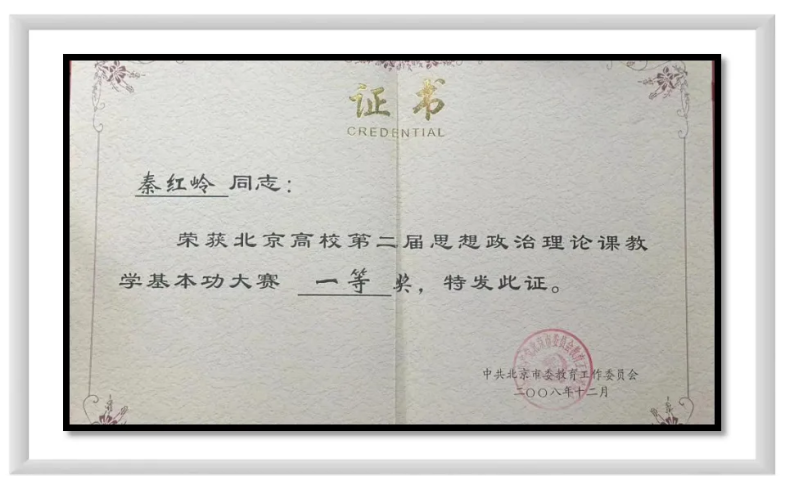 证书
CREDENTIAL
秦红岭 同志：
荣获北京高校第二届思想政治理论课教
学基本功大赛 一等 奖，特发此证。
中共北京市委教育工作委员会
二〇〇八年十二月